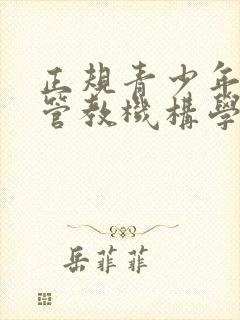 正規青少年
管教機構學
岳菲菲